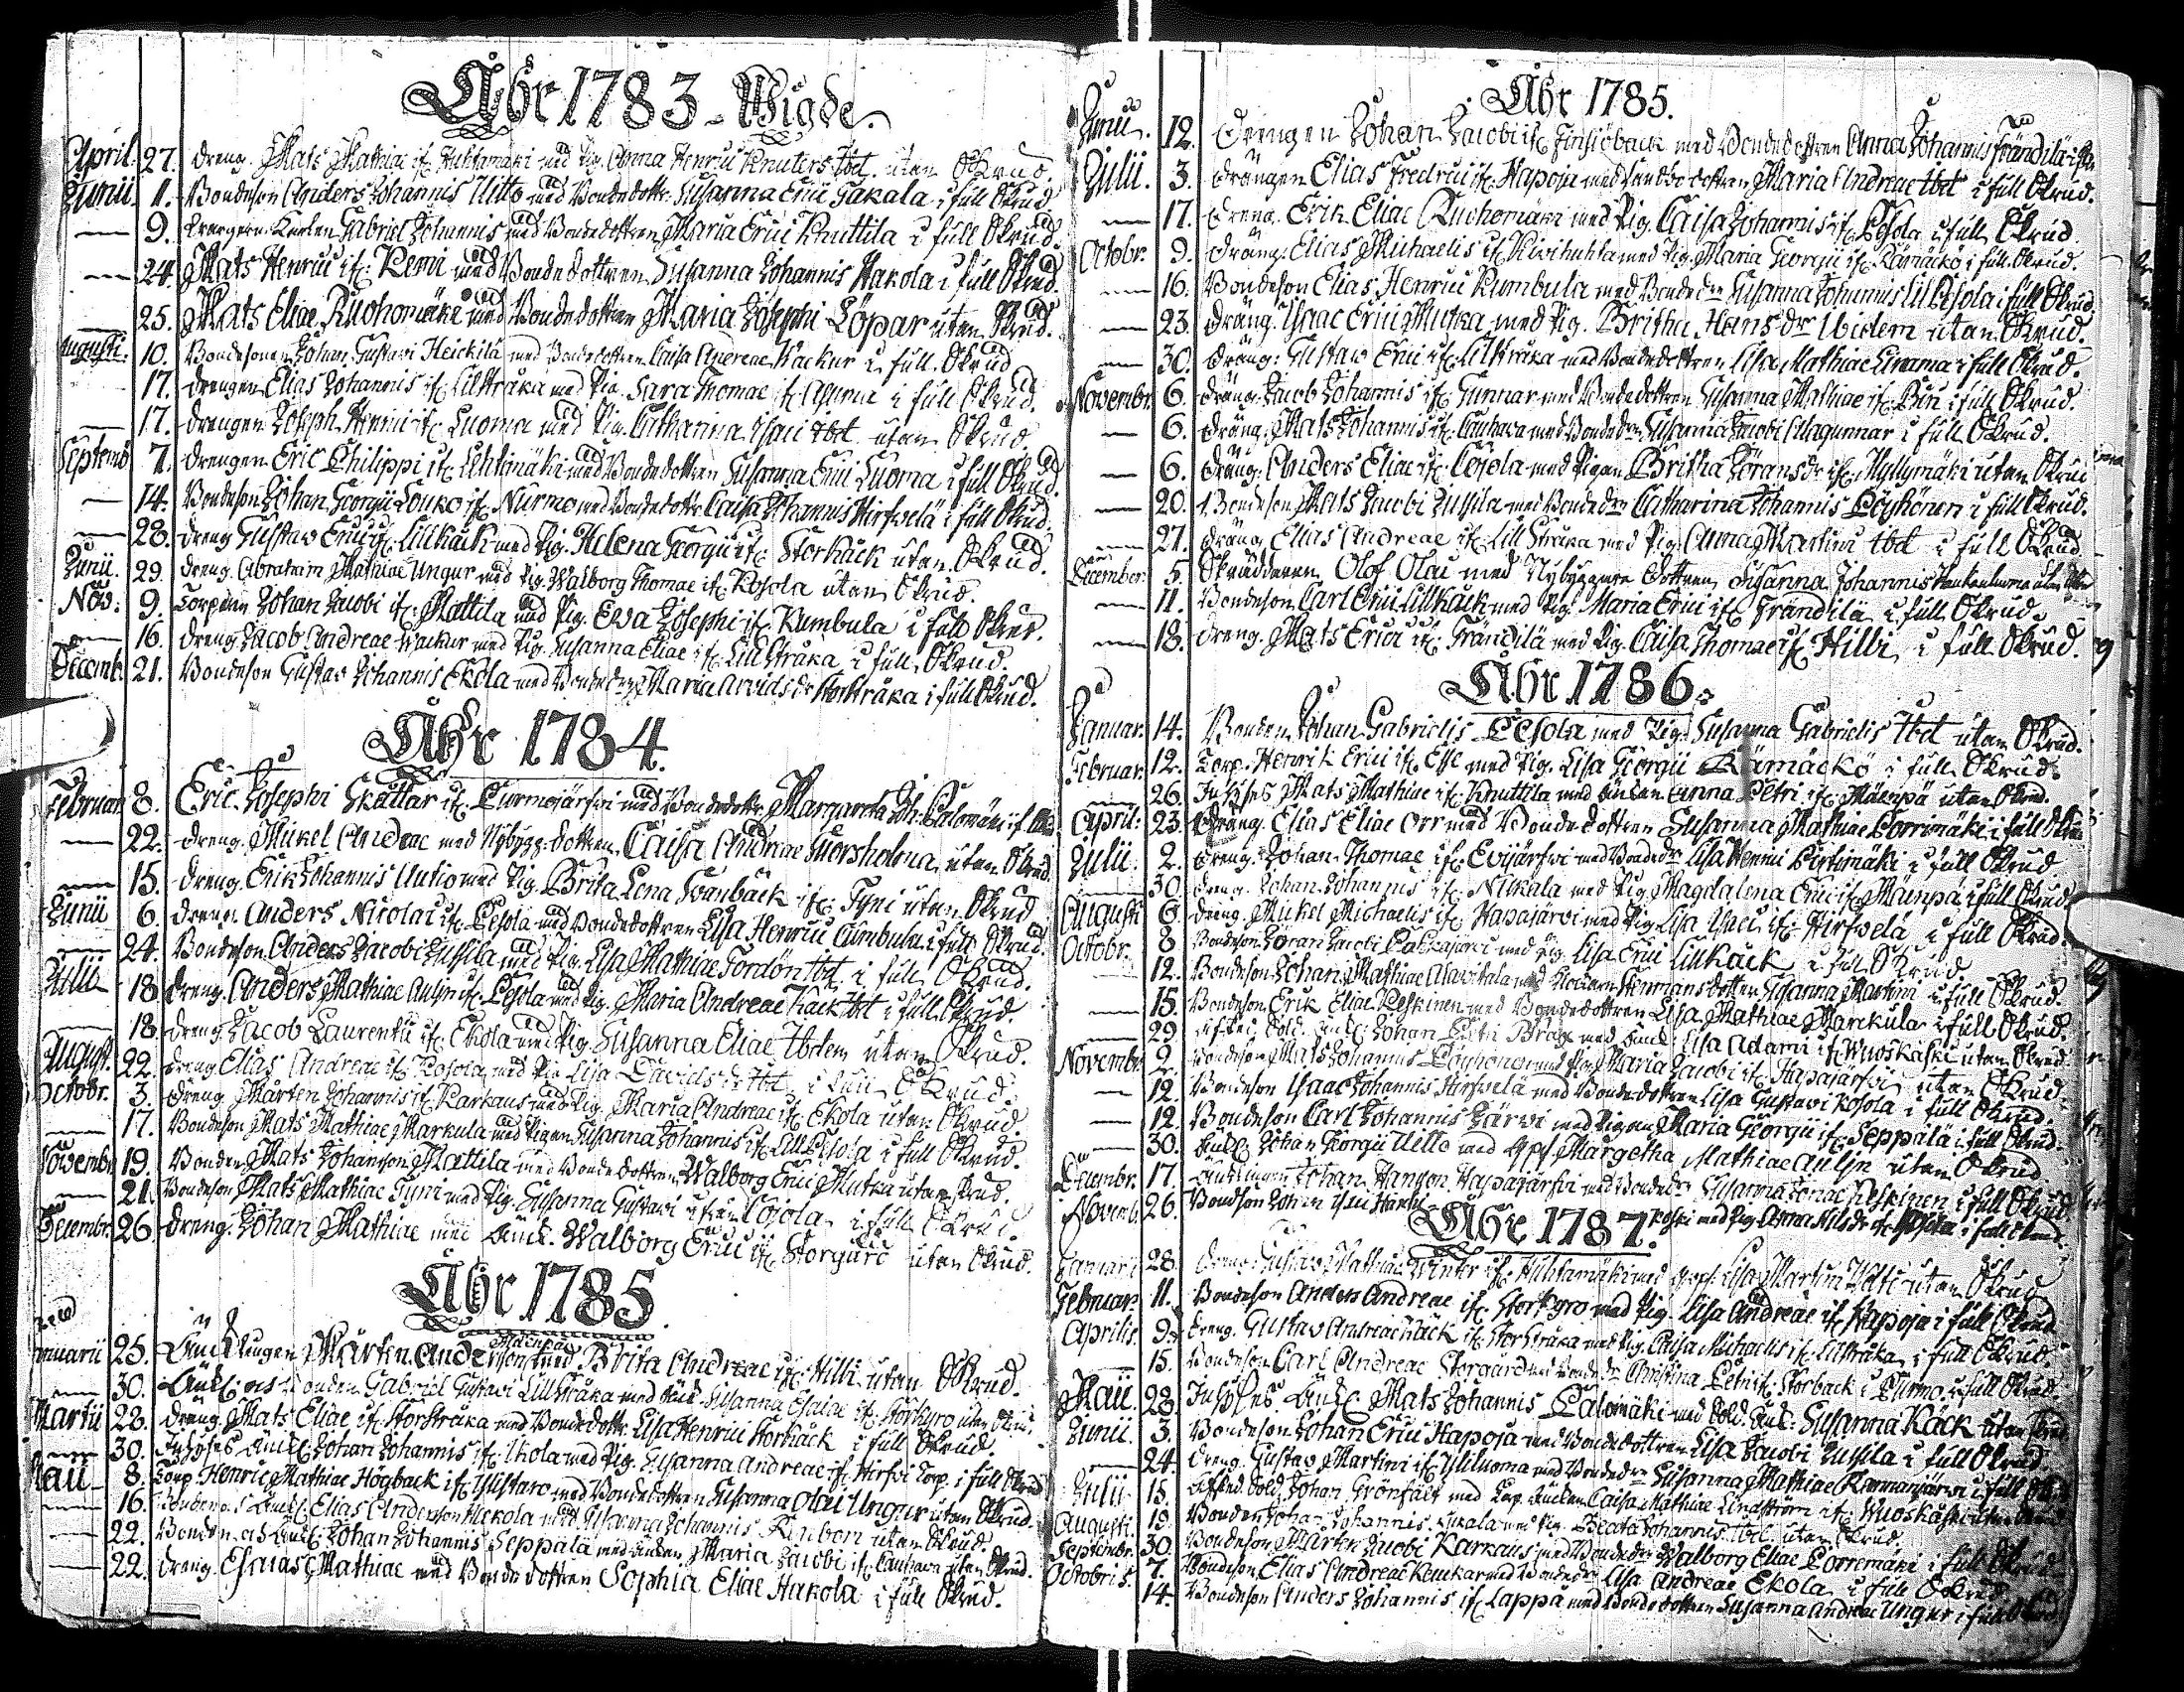 Åhr 1783 - Wigde.
April. 27. dreng. Mats Mathiae if. Huhtamäki med Pig. Anna Henrici Knuters tbd. utan Skrud.
Junii. 1. Bondeson Anders Johannis Uitto med Bondedottr. Susanna Erici Jakala i full Skrud
9. Gabriel Johannis med Bondedottren Maria Erici Knuttila i full Skrud.
24. Mats Henrici if. Remi med Bondedottren Susanna Johannis Hakola i full Skrud.
25. Mats Eliae Ruohomäki med Bondedottren Maria Josephi Löpar utan Skrud.
Augusti. 10. Bondesonen Johan Gustavi Heickilä med Bondedottren Caisa Andreae Wackur i full Skrud
17. drengen Elias Johannis if. Lillstråka med Pig. Sara Thomae if. i full Skrud.
17. drengen Joseph Henrici if. Luoma med Pig. Catharina Isaci tbd. utan Skrud
Septemb. 7. drengen Eric Philippi if. Lehtimäki med Bondedottren Susanna Erici Luoma i full Skrud.
14. Bondeson Johan Georgii Louko if. Nurmo med Bondedottr. Caisa Johannis Hirfwelä i full Skrud.
28. dreng Gustaw Erici if. Lillkäck med Pig. Helena Georgii if. Storkäck utan Skrud.
Junii. 29. dreng. Abraham Mathiae Ungur med Pig. Walborg Thomae if. Kosola utan Skrud.
Nov. 9. Torparen Johan Jacobi if. Mattila med Pig. Ewa Josephi if. Kumbula i full Skrud.
16. dreng Jacob Andreae Wackur med Pig. Susanna Eliae if. Lillstråka i full Skrud.
Decemb. 21. Bondeson Gustav Johannis Ekola med Bondedr. Maria Arvids dr Storstråka i full Skrud.
Åhr 1784.
Februar. 8. Eric Josephi Skattar if. Purmojärfwi med Bondedottr. Margareta Joh. Palomäki if.
22. dreng. Mickel Andreae med Nybygg. dottren. Caisa Andreae Morsholma utan Skrud
15. dreng. Erik Johannis Autio med Pig. Brita Lena Swanbäck if. Tyni utan Skrud
Junii 6. dreng. Anders Nicolai if. Pesola med Bondedottren Lisa Henrici Cumbula i full Skrud.
24. Bondeson Anders Jacobi Jussila med Pig. Lisa Mathiae Tordön tbd. i full Skrud.
Julii 18. dreng. Anders Mathiae if. Pesola med Pig. Maria Andreae Käck tbd i full Skrud.
18. dreng. Jacob Laurentii if. Ekola med Pig. Susanna Eliae Ibidem utan Skrud.
August. 22. dreng Elias Andreae if. Kosola med Pig Lisa Davids dr tbd. i full Skrud.
Octobr. 3. dreng Mårten Johannis if. Karhaus med Pig. Maria Andreae if. Ekola utan Skrud.
17. Bondeson Mats Mathiae Markula med Pigan Susanna Johannis if. Lill Pesola i full Skrud.
Novembr. 19. Bonden Mats Johansson Mattila med Bondedottren Walborg Erici Mutka utan Skrud.
21. Bondeson Mats Mathiae Tyni med Pig. Susanna Gustavi Cojola i full Skrud.
Decembr. 26. dreng. Johan Mathiae med Änck. Walborg Erici if. Storgård utan Skrud.
Åhr 1785.
Januarii 25. Äncklingen Mårten Andersson med Brita Andreae if. Hilli utan Skrud.
30. Änkl. och Bonden Gabriel Gustavi Lillstråka med Änk. Susanna Esaiae if. Storkyro utan Skrud.
Martii 28. dreng. Mats Eliae if. Storstråka med Bondedottr. Lisa Henrici Storkäck i full Skrud.
30. Inhyses Änkl. Johan Johannis if. Ekola med Pig. Susanna Andreae if. Hirfvi Torp. i full Skrud
Maii 8. Torp. Henric Mathiae Högback if. Ylistaro med Bondedottren Susanna Olai Ungur utan Skrud.
16. Bonden och Änkl. Elias Andersson Hekola med Susanna Johannis utan Skrud.
22. Bonden och Änkl. Johan Johannis Seppälä med Änkan Maria Jacobi if. Cauhava utan Skrud.
22. dreng. Esaias Mathiae med Bondedottren Sophia Eliae Hakola i full Skrud.
Åhr 1785.
Junii. 12. Drengen Johan Jacobi if. Finsiöback med Bondedottren Anna Johannis Frändilä i full
Julii. 3. Drängen Elias Fredrici if. Hapoja med Maria Andreae tbd i full Skrud.
17. Dreng. Erik Eliae Ruohomäki med Pig. Caisa Johannis if. Pesola i full Skrud
Octobr. 9. Dräng. Elias Michaelis if. Kivihuhta med Pig. Maria Georgii if. Rämäckö i full Skrud.
16. Bondeson Elias Henrici Kumbula med Bondedr Susanna Johannis Lill Pesola i full Skrud.
23. Dräng. Isaac Erici Mutka med Pig. Britha Hans dr Ibidem utan Skrud.
30. Dräng: Gustaw Erici if. Lillstråka med Bondedottren Lisa Mathiae Livama i full Skrud.
Novembr. 6. Dräng. Jacob Johannis if. Gunnar med Bondedottren Susanna Mathiae if. Bin i full Skrud.
6. Dräng. Mats Johannis if. Cauhava med Bondedr Susanna Jacobi Lillagunnar i full Skrud.
6. Dräng. Anders Eliae if. Cojola med Pigan Britha Jörans dr if. Myllymäki utan Skrud
20. Bondeson Mats Jacobi Jussila med Bondedr Catharina Johannis Pöyhönen i full Skrud.
27. Dräng Elias Andreae if. Lill Stråka med Pig. Anna Martini tbd i full Skrud
December. 5. Skräddaren Olof Olai med Nybyggare dottren Susanna Johannis utan Skrud
11. Bondeson Carl Erici Lillkäck med Pig. Maria Erici if. Frändilä i full Skrud.
18. dreng. Mats Erici if. Frändilä med Pig. Caisa Thomae if. Hilli i full Skrud.
Åhr 1786.
Januar. 14. Bonden Johan Gabrielis Pesola med Pig. Susanna Gabrielis tbd utan Skrud.
Februar. 12. Torp. Henrik Erici if. Esse med Pig. Lisa Georgii Rämäckö i full Skrud.
26. Inhyses Mats Mathiae if. Knuttila med Änkan Anna Petri if. Mäenpä utan Skrud.
April. 23. Dräng. Elias Eliae Orr med Bondedottren Susanna Mathiae Porrimäki i full Skrud
Julii 2. Dreng. Johan Thomae if. Evijärfwi med Bondedr Lisa Henrici Pirtimäki i full Skrud
30. Dreng. Johan Johannis if. Nikkala med Pig. Magdalena Erici if. Maunpä i full Skrud
Augusti 6. Dräng. Mickel Michaelis if. Hapajärwi med Pig. Lisa Isaci if. Hirfwelä i full Skrud.
Octobr. 8. Bondeson Jöran Jacobi Palkajärwi med Pig. Lisa Erici Lillkäck i full Skrud.
12. Bondeson Johan Mathiae Alawitala med Klockare Hinrians dotter Susanna Martini i full Skrud.
15. Bondeson Erik Eliae Keskinen med Bondedottren Lisa Mathiae Marckula i full Skrud.
29. Afsked. Sold. Änkl. Johan Petri Brag med Änck. Lisa Adami if. Wuoskoski utan Skrud.
Novembr. 2. Bondeson Mats Johannis Pöyhönen med Pig. Maria Jacobi if. Hapajärfvi utan Skrud.
12. Bondeson Isaac Johannis Hirfwelä med Bondedottren Lisa Gustavi Kosola i full Skrud.
12. Bondeson Carl Johannis Järwi med Pigan Maria Georgii if. Seppälä i full Skrud.
30. Änkl. Johan Georgii Uitto med Margetha Mathiae utan Skrud
Decembr. 17. Äncklingen Johan Hanson Hapajärfvi med Bondedr Susanna Jonae Keskinen i full Skrud
Novemb. 26. Bondson Johan Isaci med Pig. Anna Nils dr if. i full Skrud.
Åhr 1787.
Januarii 28. Dreng. Gustav Mathiae Winter if. Huhtamäki med Lisa Martini utan Skrud
Februar. 11. Bondeson Anders Andreae if. Storkyro med Pig. Lisa Andreae if. Hapoja i full Skrud
Aprilis. 9. Dreng. Gustav Andreae Käck if. Storstråka med Pig. Caisa Michaelis if. Lillstråka i full Skrud.
15. Bondeson Carl Andreae Storgård med Bondedr Christina Petri if. Storback i Purmo i full Skrud
Maii. 28. Inhyses Änkl. Mats Johannis Palomäki med Sold. Änk. Susanna Käck utan Skrud
Junii. 3. Bondeson Johan Erici Hapoja med Bondedottren Lisa Jacobi Jussila i full Skrud
24. Dreng. Gustav Martini if. Yliluoma med Bondedr Susanna Mathiae i full Skrud
Julii 15. Afsked. Sold. Johan Grönfält med Änkan Caisa Mathiae Lindström if. Wuoskoski utan Skrud
Augusti. 19. Bonden Johan Johannis med Pig. Beata Johannis tbd utan Skrud.
Septembr. 30. Bondeson Mårten Jacobi Karhaus med Bondedr Walborg Eliae Porremäki i full Skrud
Octobris. 7. Bondeson Elias Andreae med Bondedr Lisa Andreae Ekola i full Skrud
14. Bondeson Anders Johannis if. Lappa med Bondedottren Susanna Andreae Ungur i full Skrud